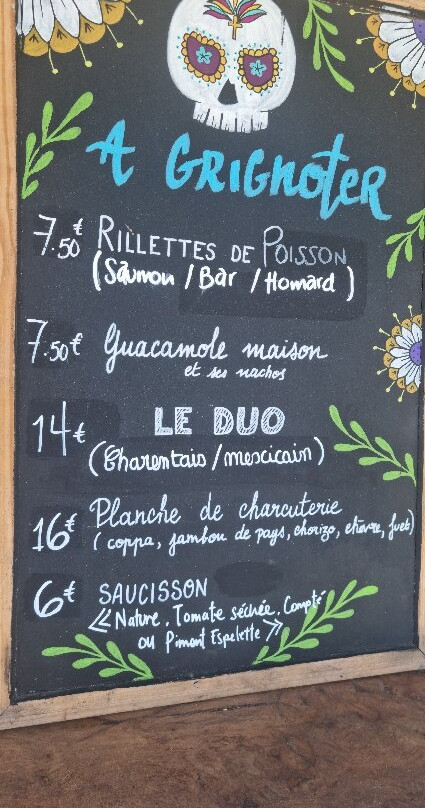 A GRIGNOTER
7.50€ RILLETTES DE POISSON
(Saumon / Bar / Homard)
7.50€ Guacamole maison
et ses nachos
14€ LE DUO
(Charentais / mexicain)
16€ Planche de charcuterie
(coppa, jambou de pays, chorizo, chèvre, fuet)
6€ SAUCISSON
<< Nature, Tomate séchée, Compté
ou Piment Espelette >>